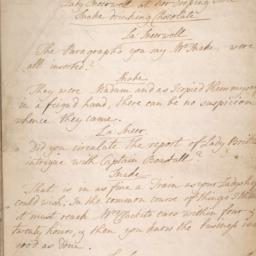 Lady Sneerwell at her
Snake drinking Chocolate
La Sneerwell
The Paragraphs you say Mr Snake, were
all inserted?
Snake
They were Madam and as I copied them myself
in a feigned hand, there can be no suspicion
whence they came.
La Sneer.
Did you circulate the report of Lady Brittle's
intrigue with Captain Boastall?
Snake
That is in as fine a Train as your Ladyship
could wish. In the common course of things I think
it must reach Mrs Clackits ears within four &
twenty hours, & then you know the business is as
good as done.